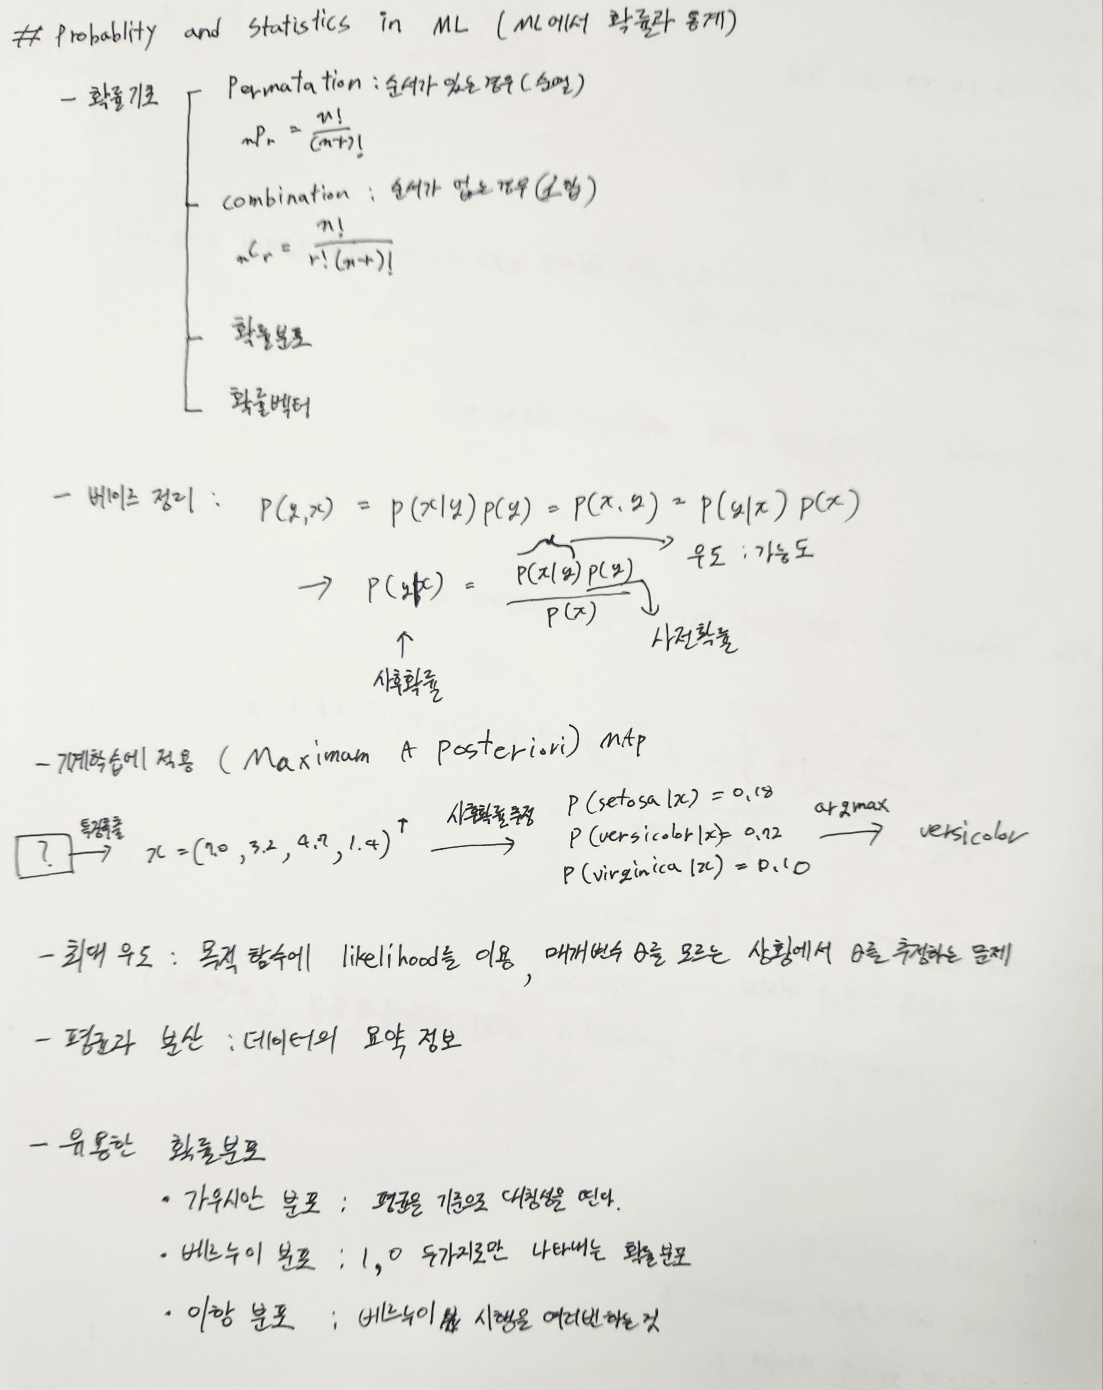 # Probablity and Statistics in ML (ML에서 확률과 통계)
- 확률기초
Permatation : 순서가 있는 경우 (순열)
nPr = n! / (n-r)!
combination : 순서가 없는 경우 (조합)
nCr = n! / r! (n-r)!
확률분포
확률벡터
- 베이즈 정리 : P(y,x) = P(x|y) P(y) = P(x,y) = P(y|x) P(x)
우도 : 가능도
→ P(y|x) = P(x|y) P(y) / P(x)
사전확률
↑
사후확률
- 기계학습에 적용 (Maximam A Posteriori) MAP
? 특징추출 → x = (7.0, 3.2, 4.7, 1.4)ᵀ 사후확률추정 →
P(setosa|x) = 0.18
P(versicolor|x) = 0.72
P(virginica|x) = 0.10
argmax → versicolor
- 최대 우도 : 목적 함수에 likelihood를 이용, 매개변수 θ를 모르는 상황에서 θ를 추정하는 문제
- 평균과 분산 : 데이터의 요약 정보
- 유용한 확률분포
• 가우시안 분포 : 평균을 기준으로 대칭성을 띤다.
• 베르누이 분포 : 1, 0 두가지로만 나타내는 확률분포
• 이항 분포 : 베르누이 시행을 여러번 하는 것